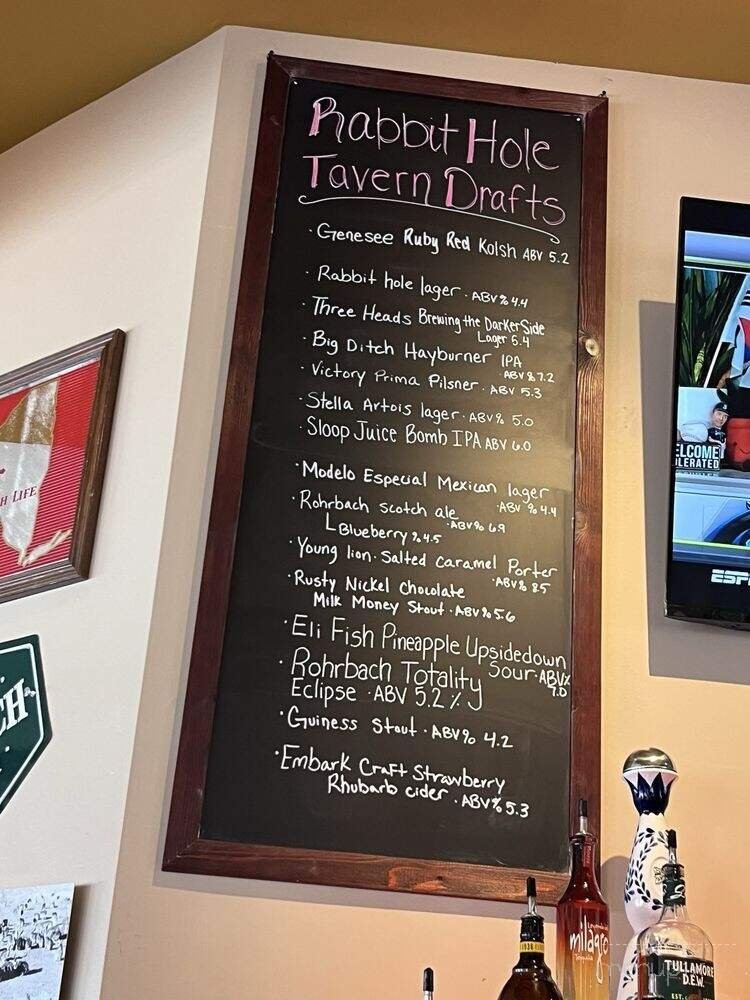 Rabbit Hole
Tavern Drafts
· Genesee Ruby Red Kolsh ABV 5.2
· Rabbit hole lager · ABV % 4.4
· Three Heads Brewing the Darker Side
Lager 5.4
· Big Ditch Hayburner IPA
· ABV % 7.2
· Victory Prima Pilsner · ABV 5.3
· Stella Artois lager · ABV % 5.0
· Sloop Juice Bomb IPA ABV 6.0
· Modelo Especial Mexican lager
· ABV % 4.4
· Rohrbach scotch ale
· ABV % 6.9
L Blueberry % 4.5
· Young lion · Salted Caramel Porter
· ABV % 8.5
· Rusty Nickel Chocolate
Milk Money Stout · ABV % 5.6
· Eli Fish Pineapple Upsidedown
Sour · ABV %
7.0
· Rohrbach Totality
Eclipse · ABV 5.2 %
· Guiness Stout · ABV % 4.2
· Embark Craft Strawberry
Rhubarb cider · ABV % 5.3
H LIFE
CH
ELCOME
LERATED
ESP
milagro
TULLAMORE
D.E.W.